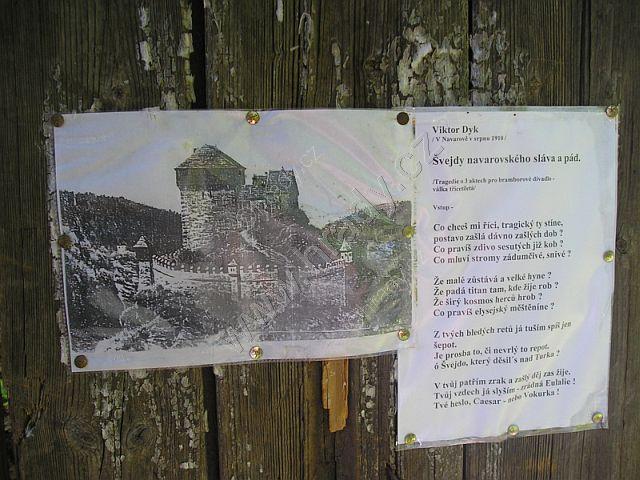 Viktor Dyk
/ V Navarově v srpnu 1910 /
Švejdy navarovského sláva a pád.
/Tragedie o 3 aktech pro bramborové divadlo -
válka třicetiletá/
Vstup -
Co chceš mi říci, tragický ty stíne,
postavo zašlá dávno zašlých dob ?
Co pravíš zdivo sesutých již kob ?
Co mluví stromy zádumčivé, snivé ?
Že malé zůstává a velké hyne ?
Že padá titan tam, kde žije rob ?
Že širý kosmos herců hrob ?
Co pravíš elysejský měštěníne ?
Z tvých bledých retů já tuším spíš jen
šepot.
Je prosba to, či nevrlý to repot.
ó Švejdo, který děsil´s nad Turka ?
V tvůj patřím zrak a zašlý děj zas žije.
Tvůj vzdech já slyším - zrádná Eulalie !
Tvé heslo, Caesar - nebo Vokurka !